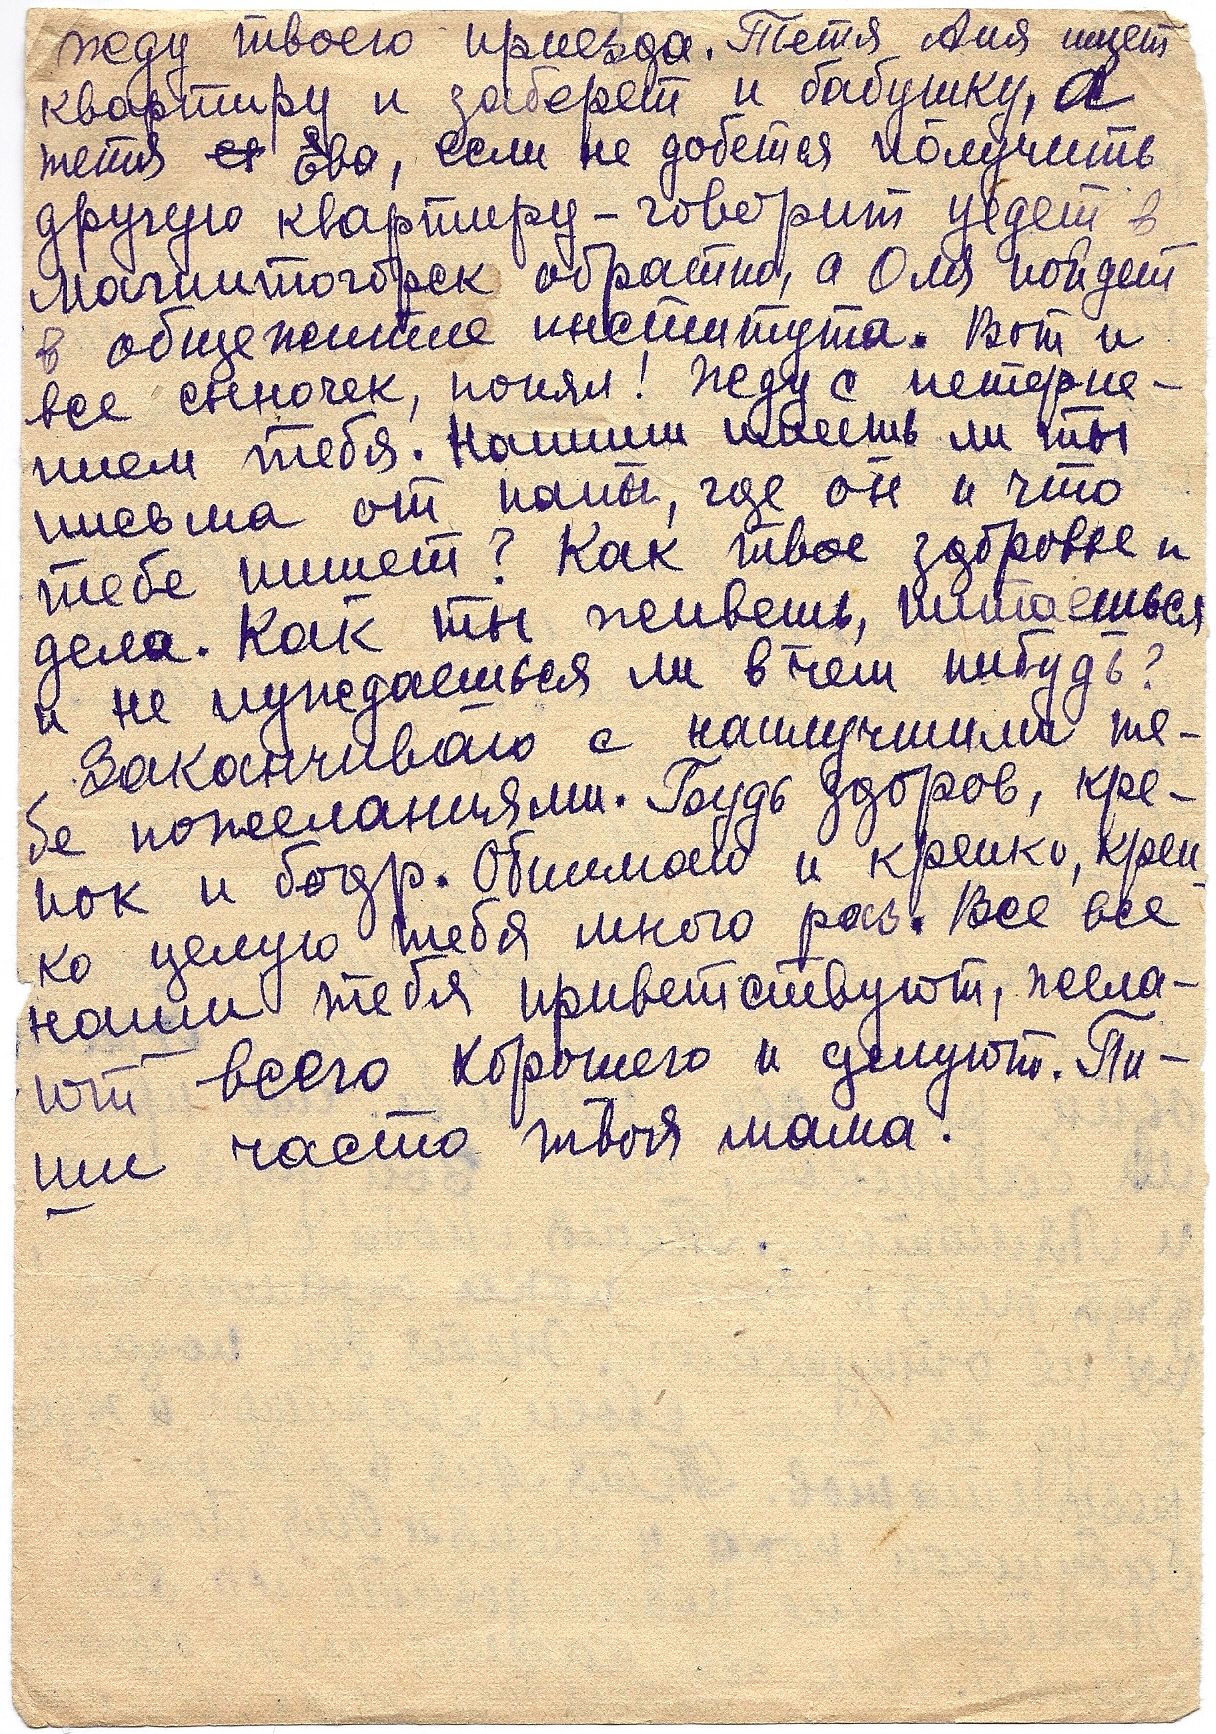 жду твоего приезда. Тетя Аня ищет
квартиру и заберет и бабушку, а
тетя Ева, если не добется получить
другую квартиру – говорит уедет в
Магнитогорск обратно, а Оля пойдет
в общежитие института. Вот и
все сыночек, понял! Жду с нетерпе-
нием тебя. Напиши имеешь ли ты
письма от папы, где он и что
тебе пишет? Как твое здоровье и
дела. Как ты живешь, питаешься
и не нуждаешься ли в чем нибудь?
Заканчиваю с наилучшими те-
бе пожеланиями. Будь здоров, кре-
пок и бодр. Обнимаю и крепко, креп
ко целую тебя много раз. Все все
наши тебя приветствуют, жела-
ют всего хорошего и целуют. Пи-
ши часто твоя мама.